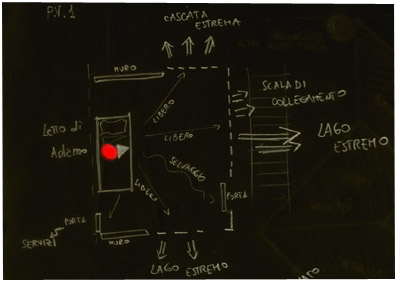 P.V. 1
CASCATA
ESTREMA
MURO
SCALA DI
COLLEGAMENTO
LIBERO
LIBERO
Letto di
Adamo
LAGO
ESTREMO
SELVAGGIO
LIBERO
PORTA
PORTA
SERVIZI
MURO
LAGO ESTREMO